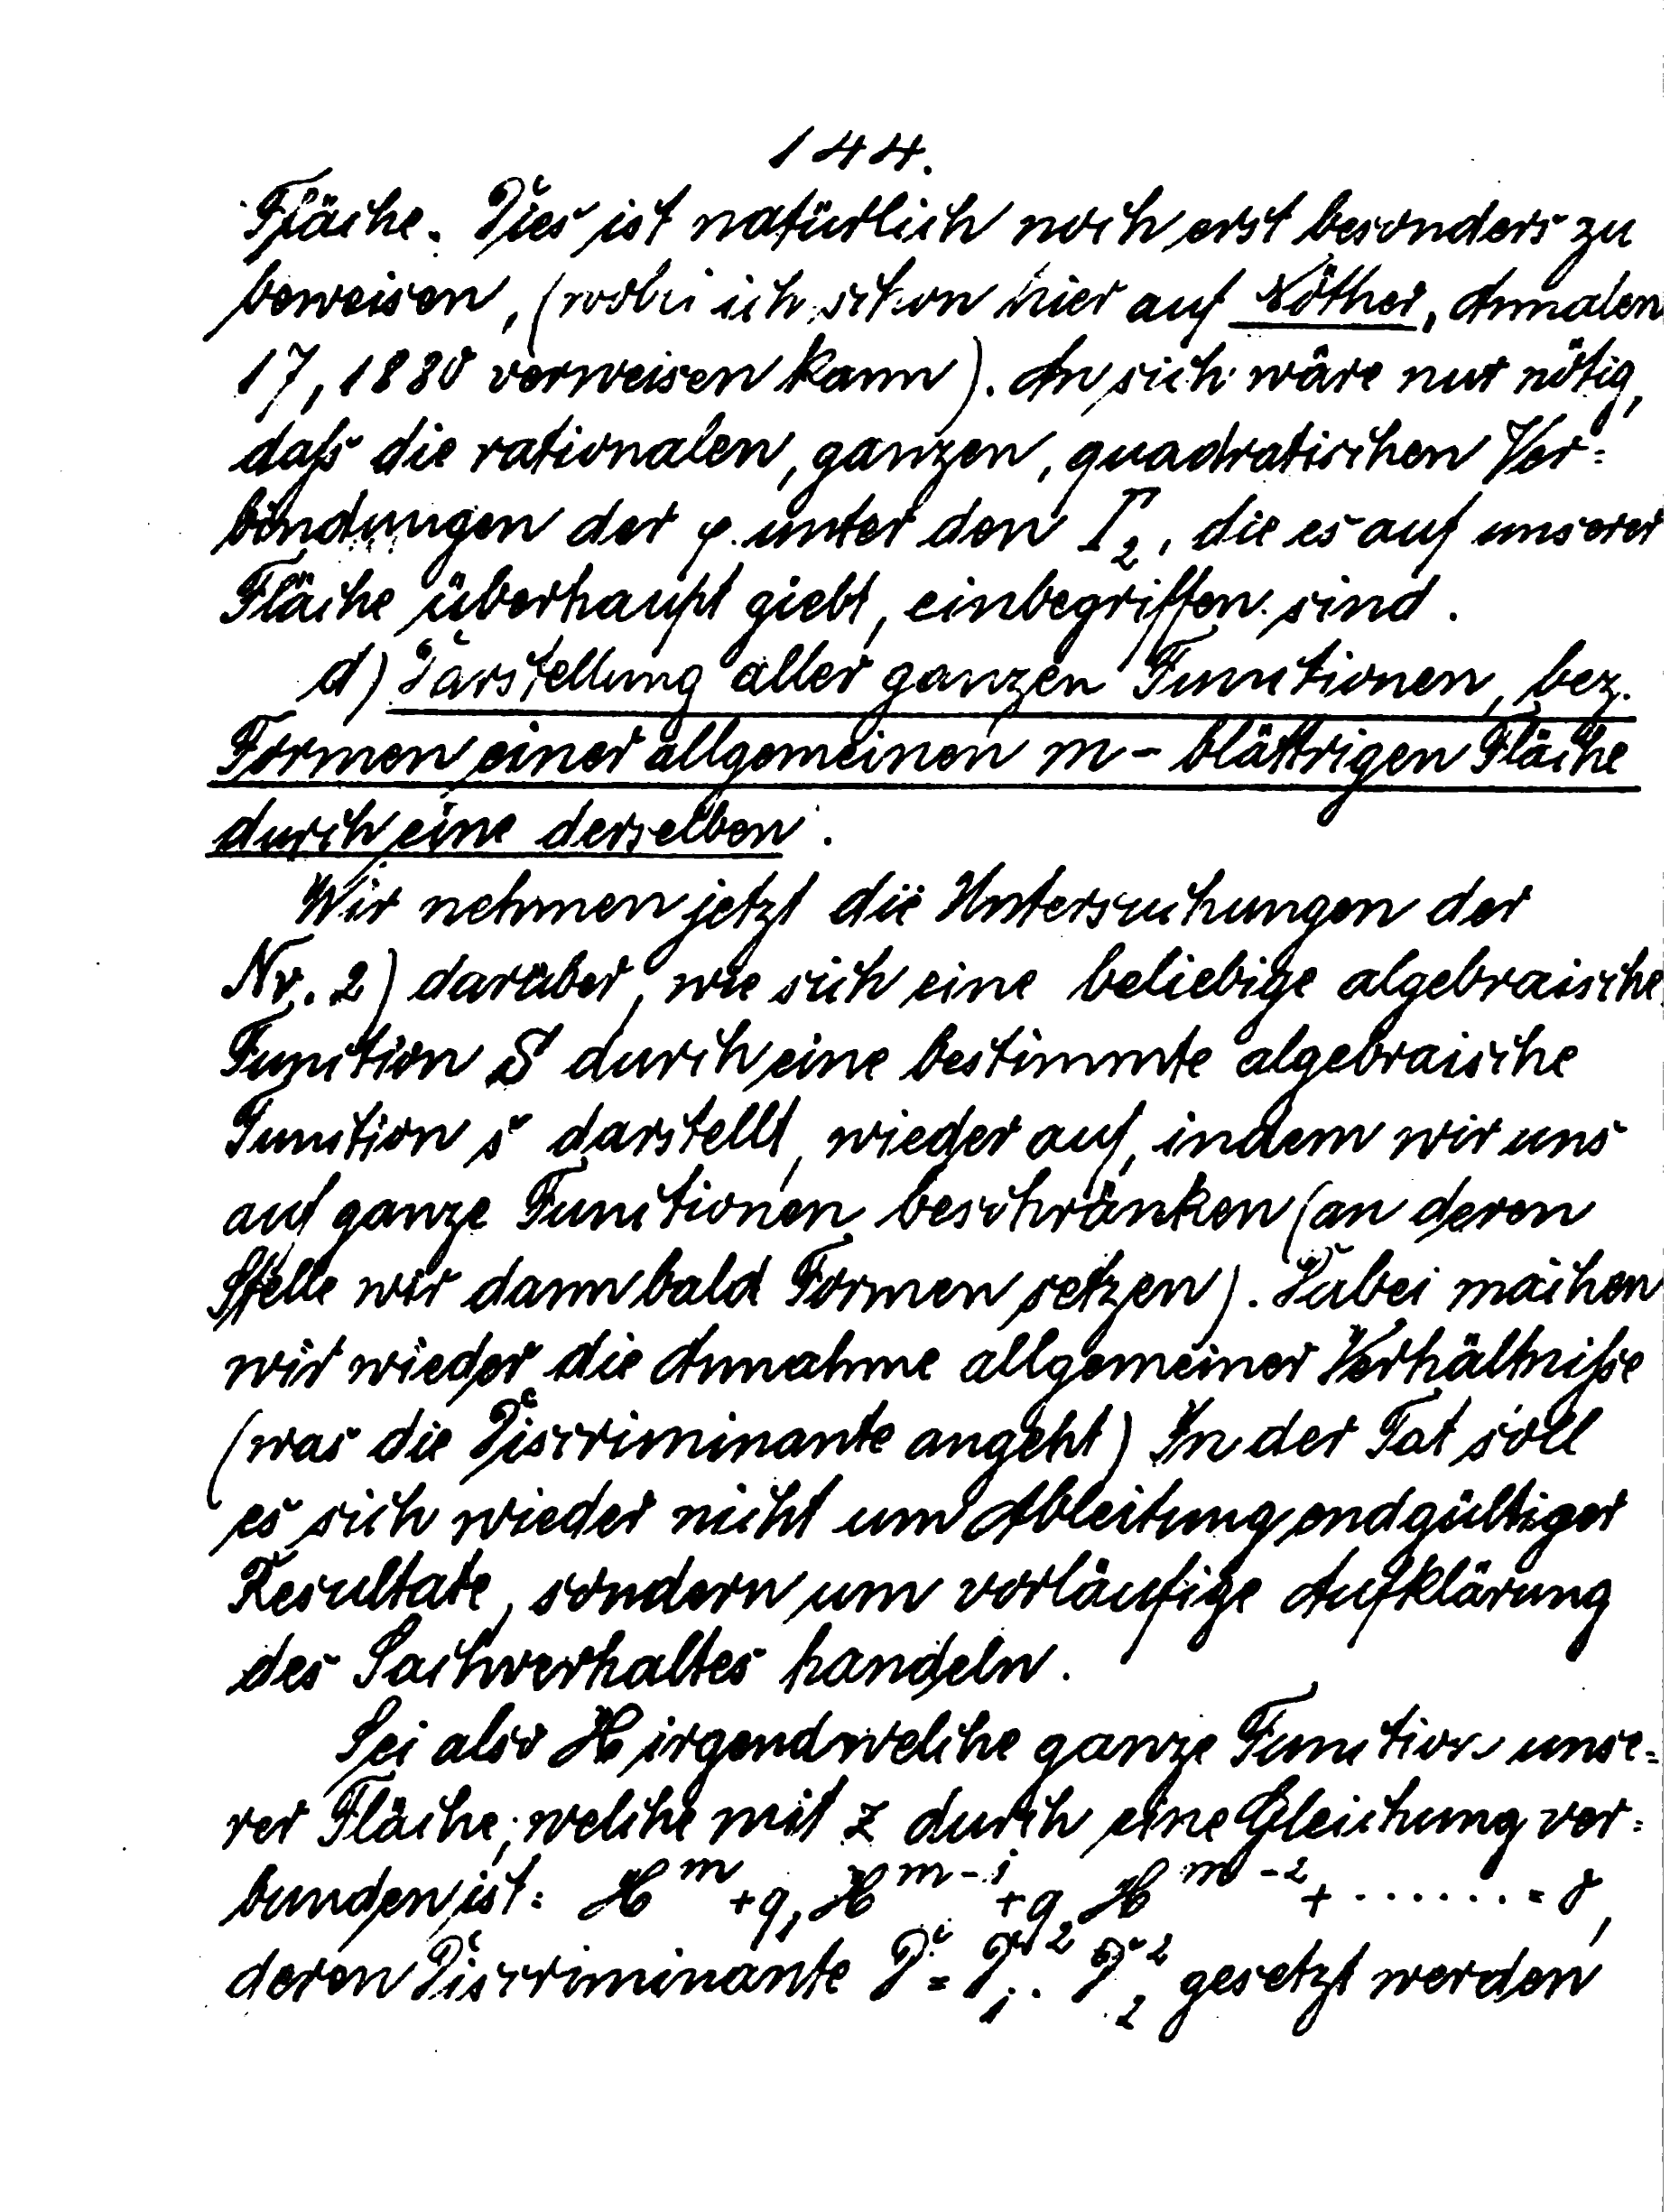 144.
Fläche. Dies ist natürlich noch erst besonders zu
beweisen, (wobei ich schon hier auf Nöther, Annalen
17, 1880 verweisen kann). An sich wäre nur nötig,
daß die rationalen, ganzen, quadratischen Ver=
bindungen der φ unter den Γ₂, die es auf unserer
Fläche überhaupt giebt, einbegriffen sind.
d) Darstellung aller ganzen Functionen, bez.
Formen einer allgemeinen m-blättrigen Fläche
durch eine derselben.
Wir nehmen jetzt die Untersuchungen der
Nr. 2) darüber, wie sich eine beliebige algebraische
Function S durch eine bestimmte algebraische
Function s darstellt, wieder auf, indem wir uns
auf ganze Functionen beschränken (an deren
Stelle wir dann bald Formen setzen). Dabei machen
wir wieder die Annahme allgemeiner Verhältniße
(was die Discriminante angeht) In der Tat soll
es sich wieder nicht um Ableitung endgültiger
Resultate, sondern um vorläufige Aufklärung
des Sachverhaltes handeln.
Sei also H irgendwelche ganze Function unse=
rer Fläche, welche mit z durch eine Gleichung ver=
bunden ist: H^m + g₁ H^{m-1} + g₂ H^{m-2} + ······· = 0,
deren Discriminante D = D₁ · D₂² gesetzt werden